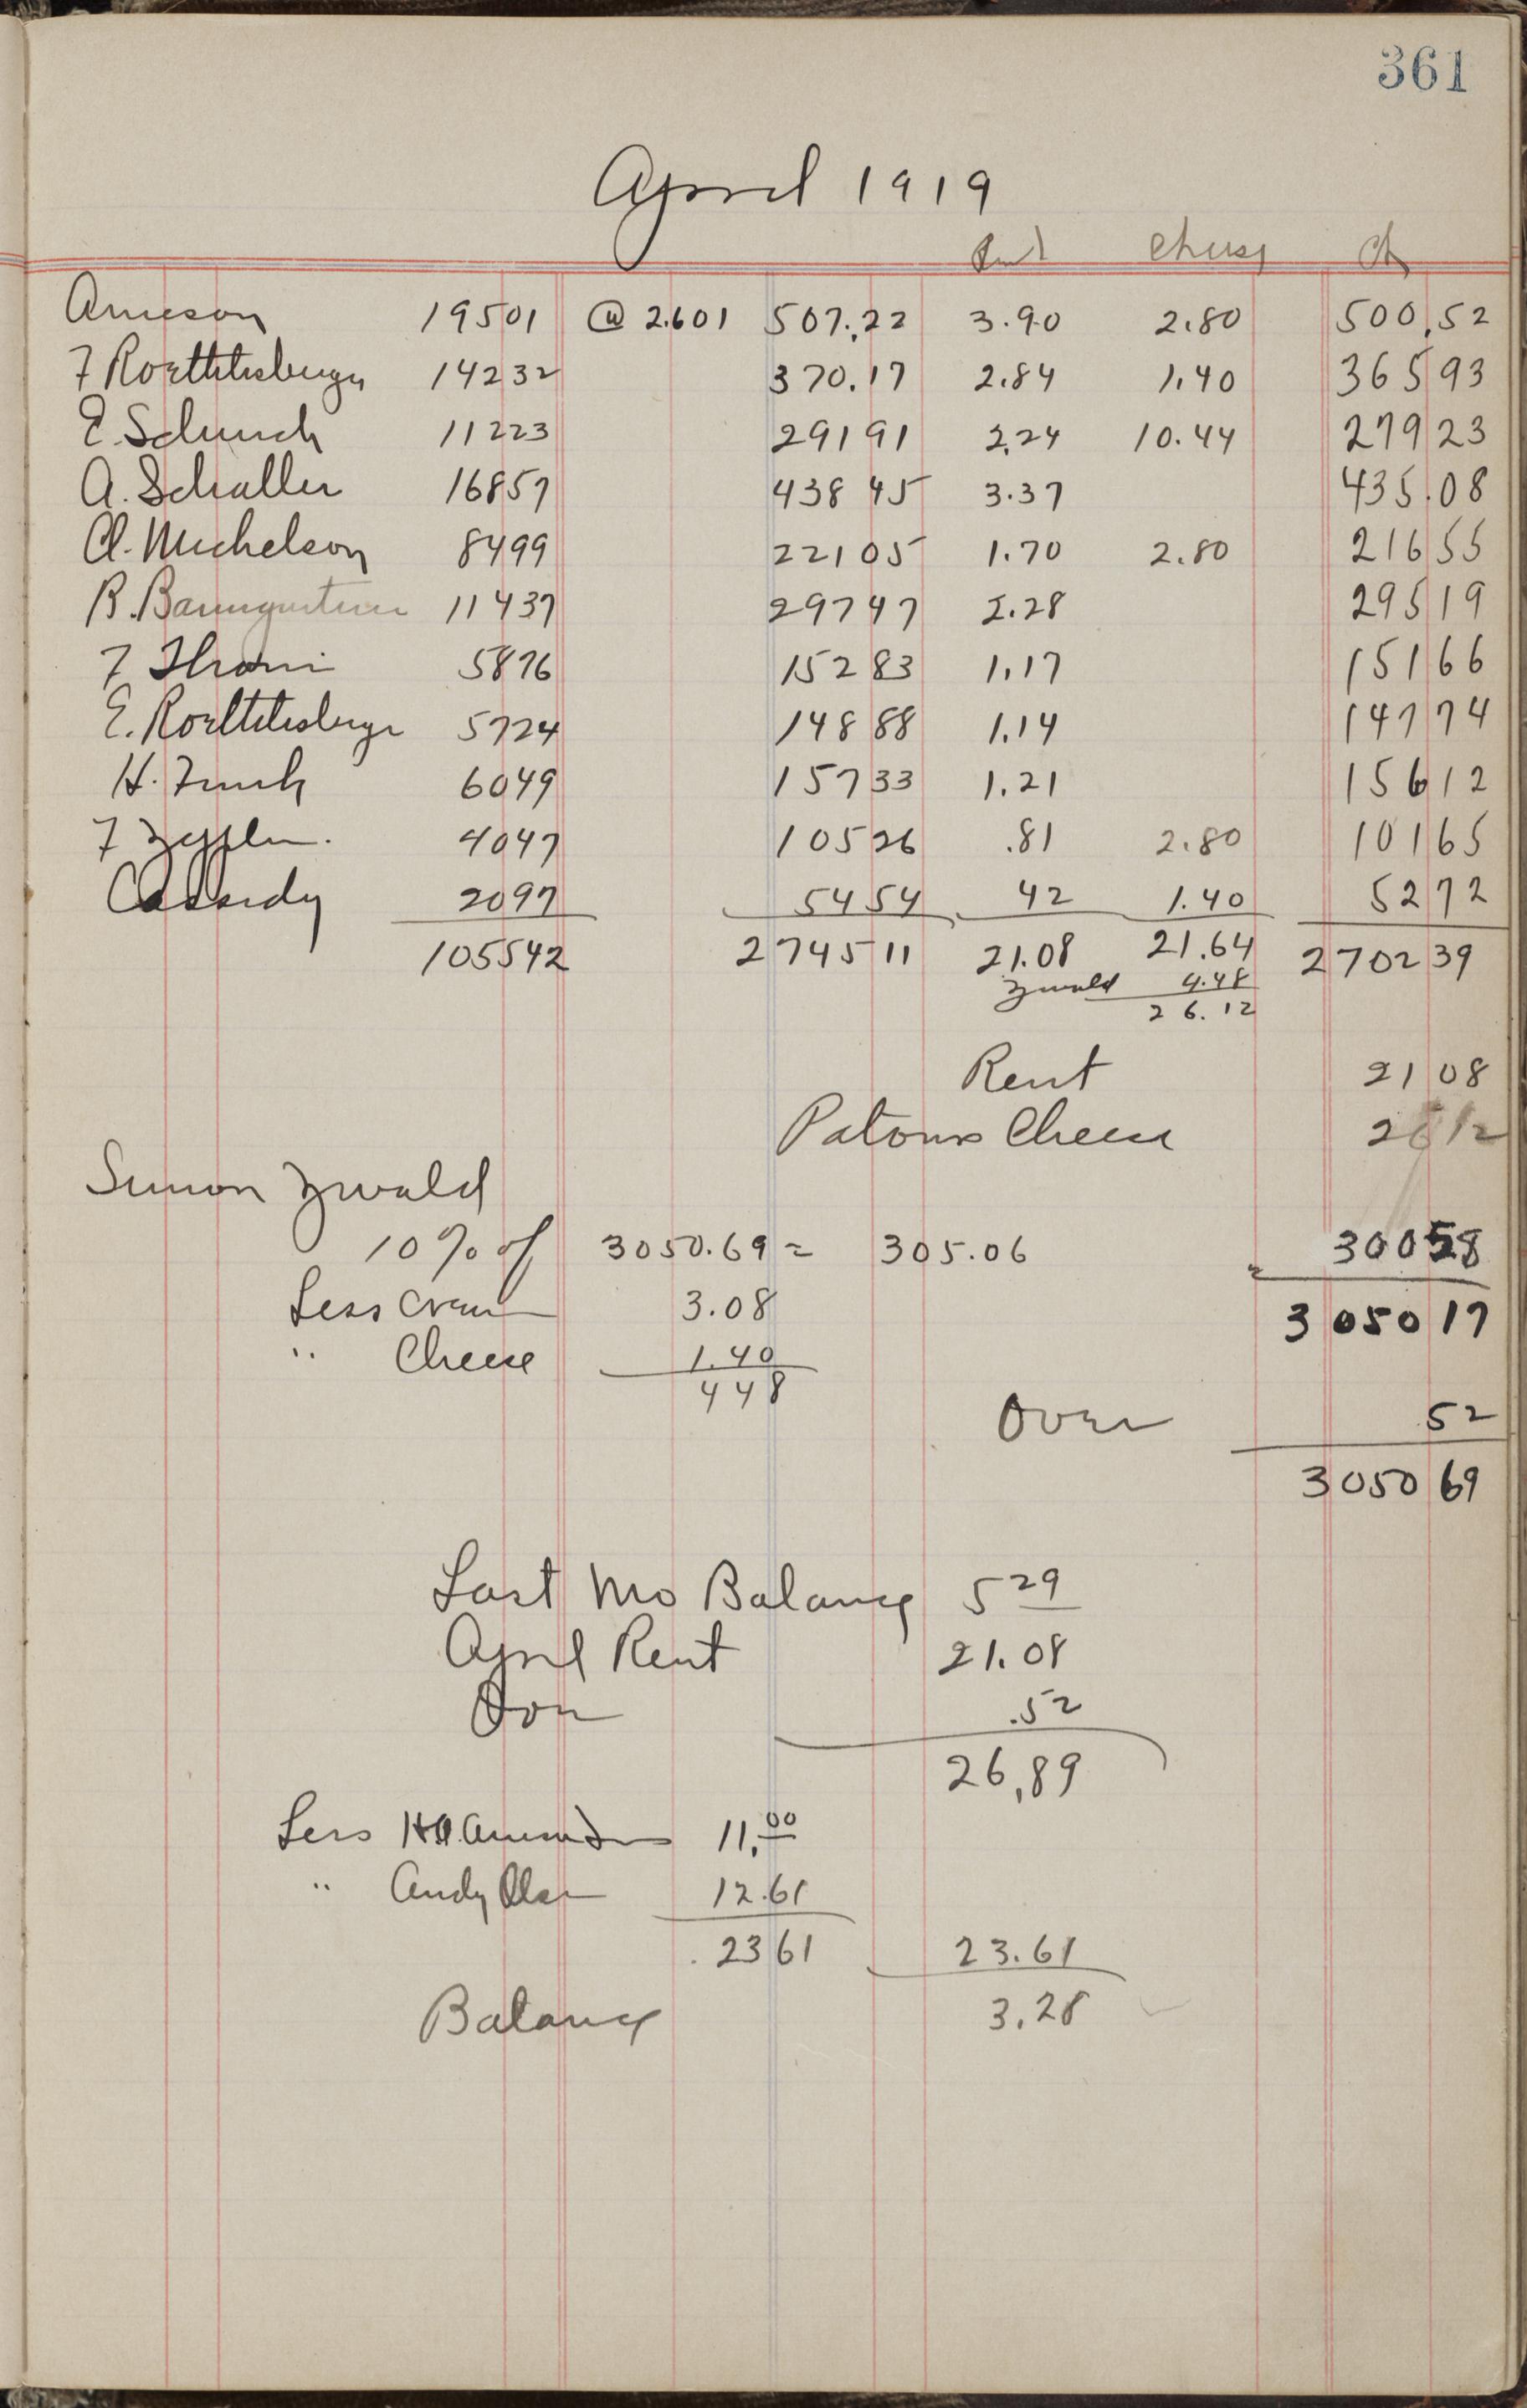 361
April 1919
Rent Cheese Ch
Arneson 19501 @ 2.601 507.22 3.90 2.80 500.52
F Roethlisberger 14232 370.17 2.84 1.40 365 93
E. Schurch 11223 291 91 2.24 10.44 279 23
A. Schaller 16857 438 45 3.37 435.08
Cl. Michelson 8499 221 05 1.70 2.80 216 55
R. Baumgartner 11437 297 47 2.28 295 19
F 5876 152 83 1.17 151 66
E. Roethlisberger 5724 148 88 1.14 147 74
H. Funk 6049 157 33 1.21 156 12
F 4047 105 26 .81 2.80 101 65
Cassidy 2097 54 54 42 1.40 52 72
105542 2745 11 21.08 21.64 2702 39
Zwald 4.48
26.12
Rent 21 08
Patrons Cheese 26 12
Simon Zwald
10% of 3050.69 = 305.06 300 58
Less Cream 3.08 3050 17
" Cheese 1.40
448
Over 52
3050 69
Last Mo Balance 5 29
April Rent 21.08
Over .52
26.89
Less H.A. Arneson 11.00
" Andy Olson 12.61
23 61 23.61
Balance 3.28